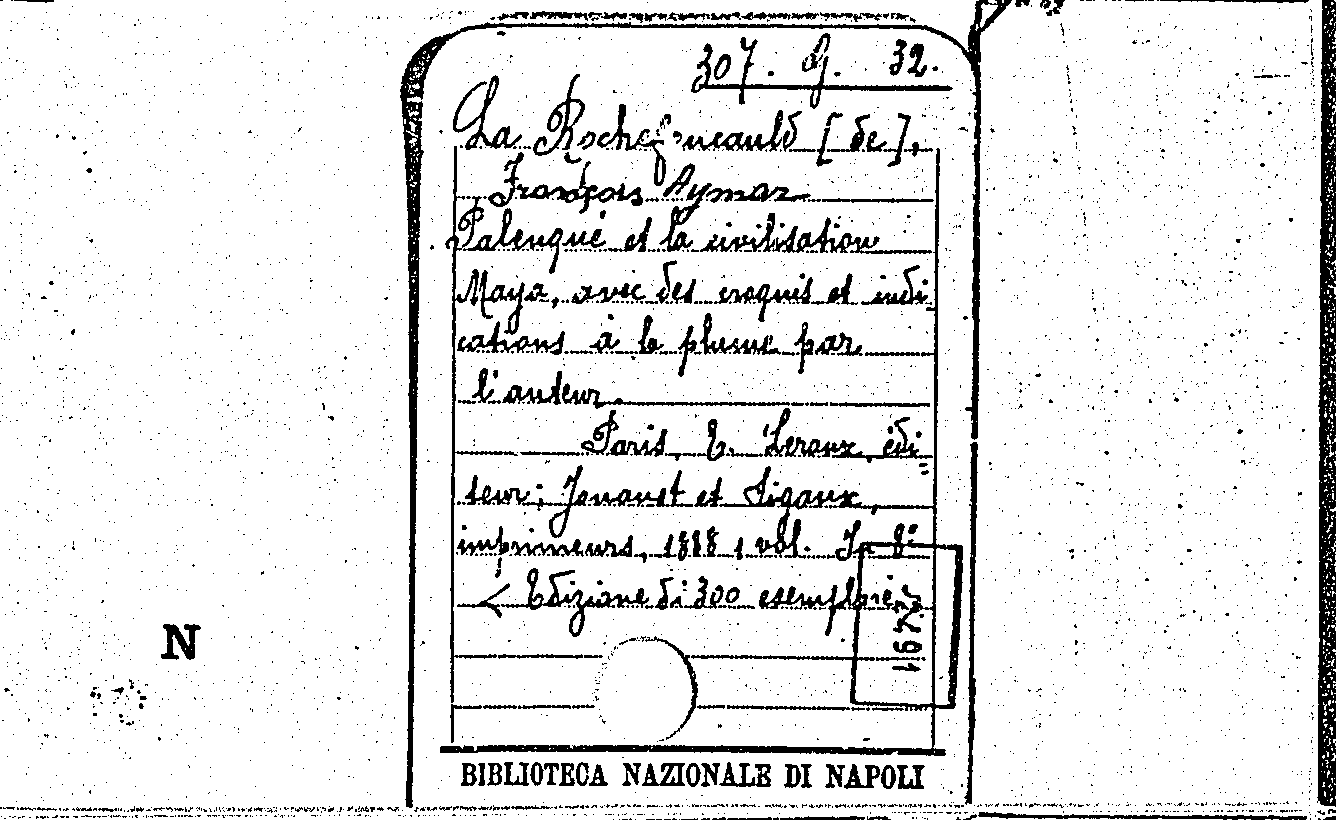 307. G. 32.
La Rochefoucauld [de],
François Aymar
Palenqué et la civilisation
Maya, avec des croquis et indi
cations à la plume par
l'auteur.
Paris, E. Leroux, édi
teur; Jouaust et Sigaux,
imprimeurs, 1888 1 vol. In 8º
< Edizione di 300 esemplari
N
BIBLIOTECA NAZIONALE DI NAPOLI